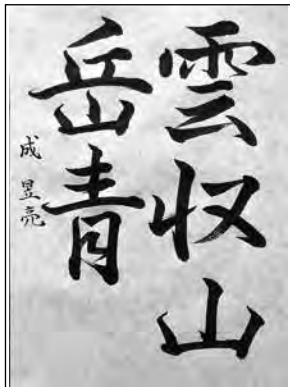 雲収山
岳青
成 昱亮